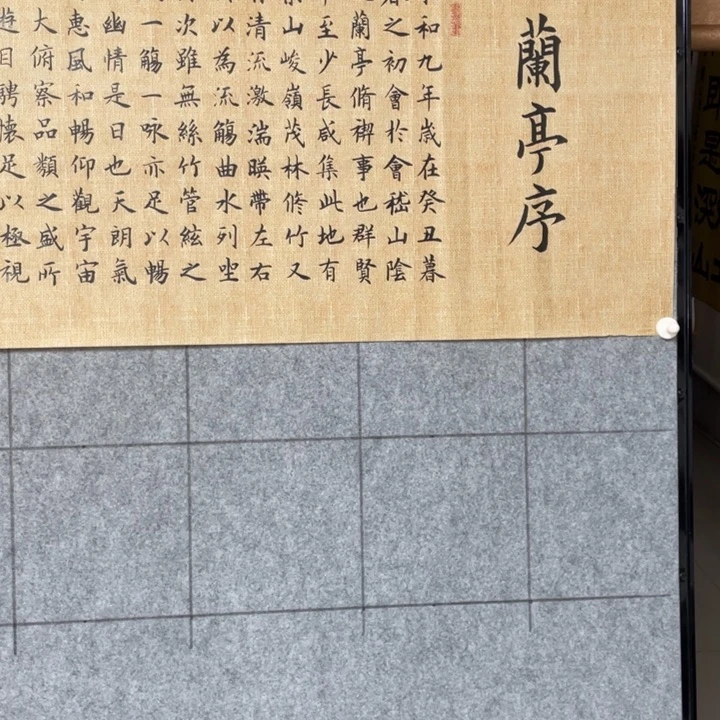 蘭亭序
和九年歲在癸丑暮
之初會於會嵇山陰
蘭亭脩禊事也群賢
至少長咸集此地有
山峻嶺茂林修竹又
清流激湍暎帶左右
以為流觴曲水列坐
次雖無絲竹管絃之
一觴一詠亦足以暢
幽情是日也天朗氣
惠風和暢仰觀宇宙
大俯察品類之盛所
遊目騁懷足以極視